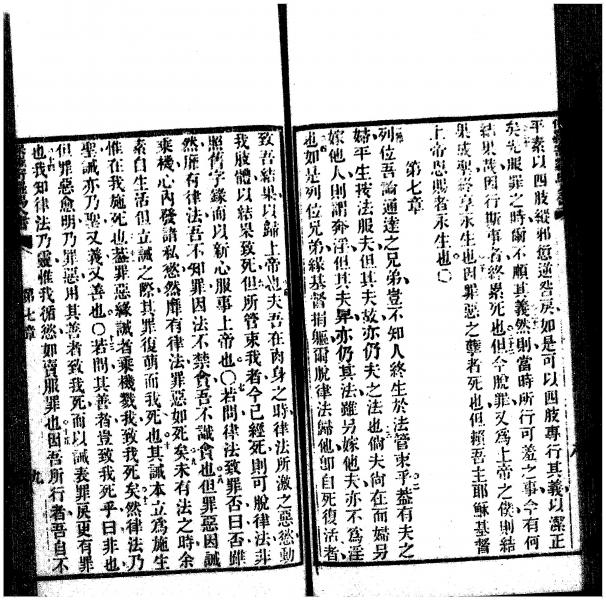 平素以四肢縱邪慾逆咎戾如是可以四肢專行其義以潔正
矣先服罪之時爾不順其義然則當時所行可羞之事今有何
結果哉因行斯事者終累死也但今脫罪又為上帝之僕則結
果成聖終享永生也因罪惡之孽者死也但賴吾主耶穌基督
上帝恩賜者永生也〇
第七章
列位吾論通達之兄弟豈不知人終生於法管束乎蓋有夫之
婦平生按法服夫但其夫故亦仍夫之法也倘夫尚在而婦另
嫁他人則謂奔淫但其夫畢亦仍其法雖另嫁他夫亦不為淫
也如是列位兄弟緣基督捐軀爾脫律法歸他卽自死復活者
致吾結果以歸上帝也夫吾在肉身之時律法所激之惡慾動
我肢體以結果致死但所管束我者今已經死則可脫律法非
照舊字緣而以新心服事上帝也〇若問律法致罪否曰否雖
然靡有律法吾不知罪因法不禁貪吾不識貪也但罪惡因誡
乘機心內發諸私慾然靡有律法罪惡如死矣未有法之時余
素自生活但立誡之際其罪復萌而我死也其誡本立為施生
惟在我施死也蓋罪惡緣誡者乘機戮我致我死矣然律法乃
聖誡亦乃聖又義又善也〇若問其善者豈致我死乎曰非也
但罪惡愈明乃罪惡用其善者致我死而以誡表罪戾更有罪
也我知律法乃靈惟我循慾如賣服罪也因吾所行者吾自不
第七章 九